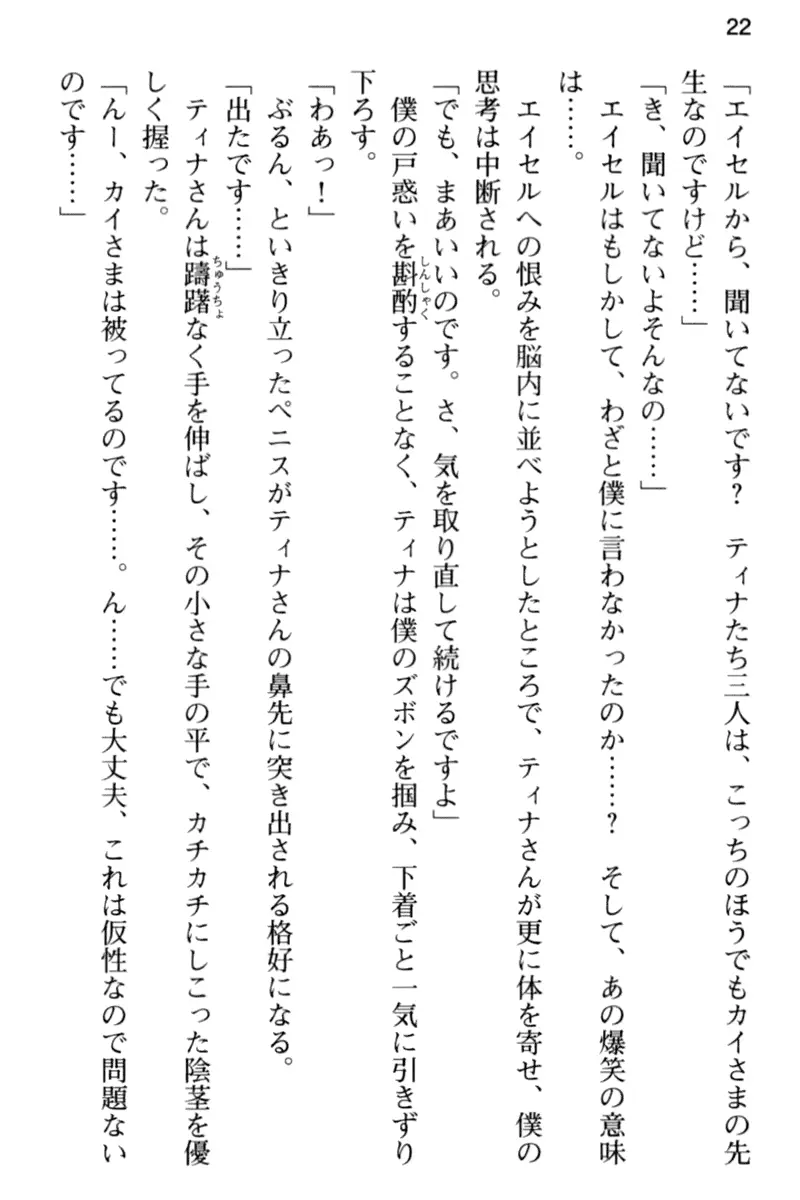 22
「エイセルから、聞いてないです？　ティナたち三人は、こっちのほうでもカイさまの先
生なのですけど……」
「き、聞いてないよそんなの……」
　エイセルはもしかして、わざと僕に言わなかったのか……？　そして、あの爆笑の意味
は……。
　エイセルへの恨みを脳内に並べようとしたところで、ティナさんが更に体を寄せ、僕の
思考は中断される。
「でも、まあいいのです。さ、気を取り直して続けるですよ」
　僕の戸惑いを斟酌することなく、ティナは僕のズボンを掴み、下着ごと一気に引きずり
下ろす。
「わあっ！」
　ぶるん、といきり立ったペニスがティナさんの鼻先に突き出される格好になる。
「出たです……」
　ティナさんは躊躇なく手を伸ばし、その小さな手の平で、カチカチにしこった陰茎を優
しく握った。
「んー、カイさまは被ってるのです……。ん……でも大丈夫、これは仮性なので問題ない
のです……」